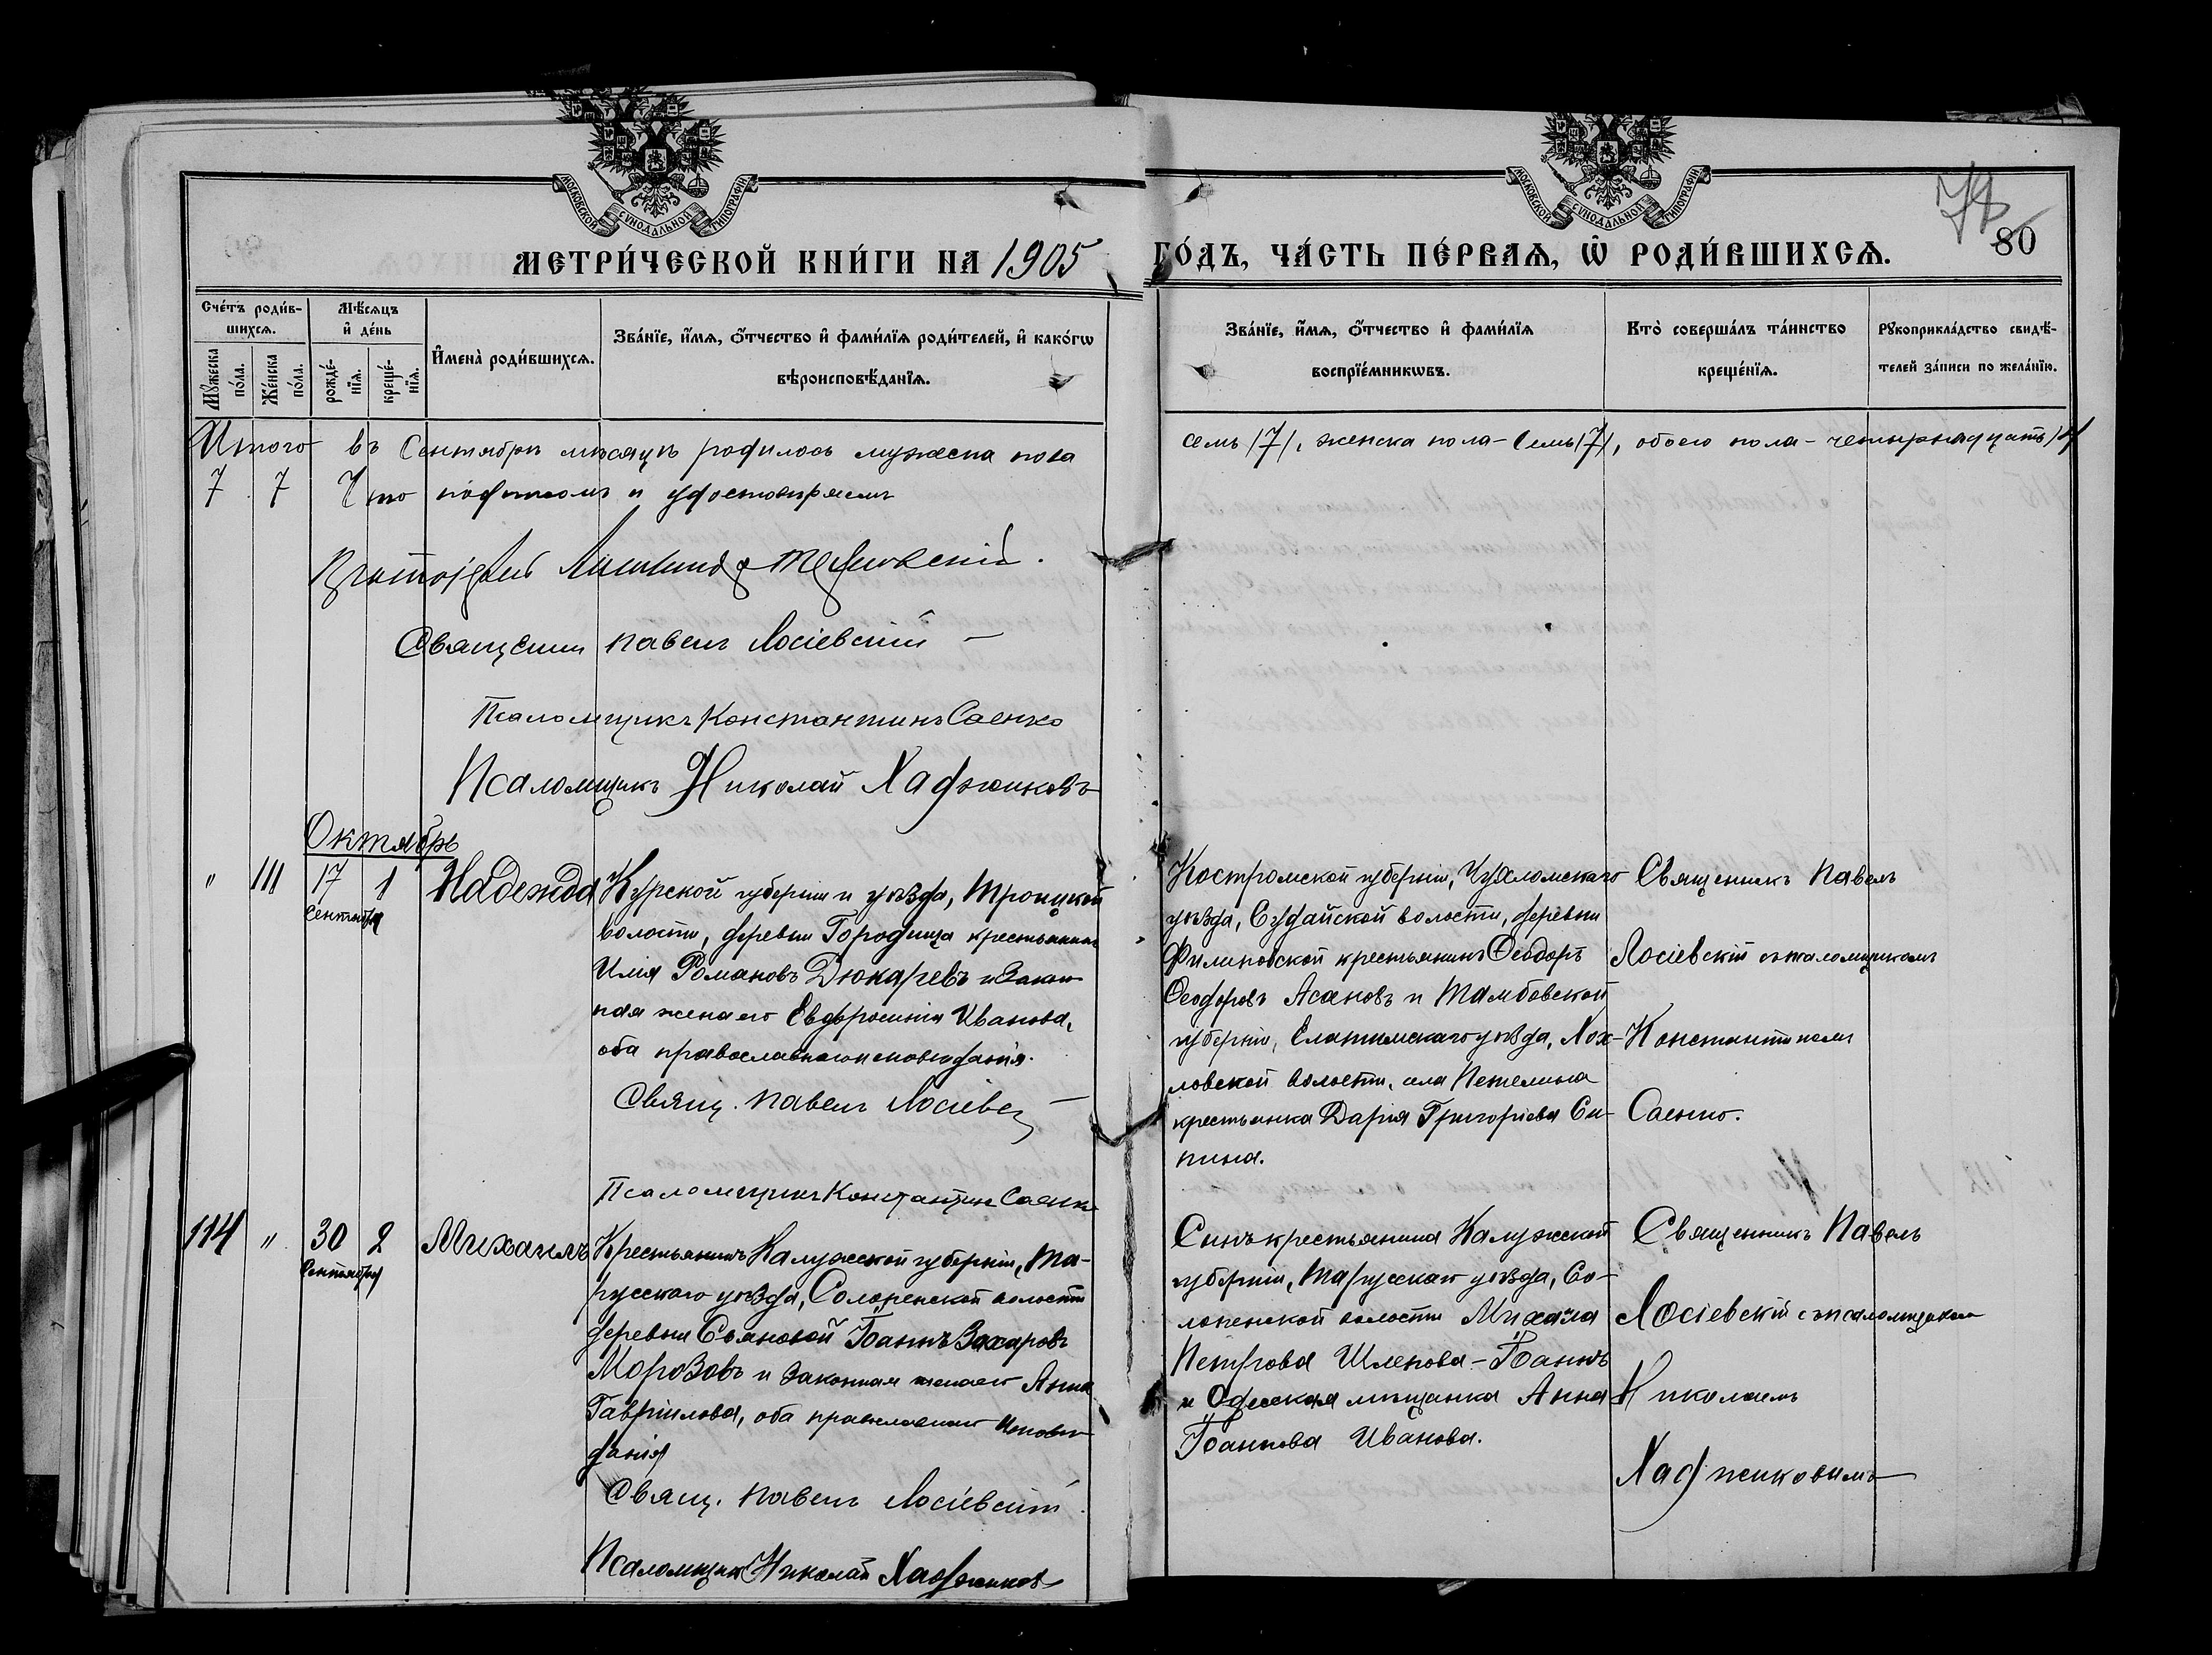 МОСКОВСКОЙ СѴНОДАЛЬНОЙ ТИПОГРАФІИ
МОСКОВСКОЙ СѴНОДАЛЬНОЙ ТИПОГРАФІИ
78
80
МЕТРИ́ЧЕСКОЙ КНИ́ГИ НА 1905 ГО́ДЪ, ЧА́СТЬ ПЕ́РВАѦ, Ѡ҆ РОДИ́ВШИХСѦ.
Сче́тъ роди́в-
шихсѧ.
Мꙋ́жеска по́ла.
Же́нска по́ла.
Мѣ́сѧцъ
и҆ де́нь
рожде́-нїѧ.
креще́-нїѧ.
И҆мена̀ роди́вшихсѧ.
Зва́нїе, и҆́мѧ, ѻ҆́тчество и҆ фами́лїѧ роди́телей, и҆ како́гѡ
вѣроисповѣ́данїѧ.
Зва́нїе, и҆́мѧ, ѻ҆́тчество и҆ фами́лїѧ
воспрїе́мникѡвъ.
Кто̀ соверша́лъ та́инство
креще́нїѧ.
Рꙋкоприкла́дство свидѣ́-
телей за́писи по жела́нїю.
Итого въ Сентябрѣ мѣсяцѣ родилось мужеска пола семь /7/, женска пола - семь /7/, обоего пола - четырнадцать
7 7 Что подписомъ и удостовѣряемъ
Священник Павелъ Лосіевскій
Псаломщикъ Константинъ Саенко
Псаломщикъ Николай Хаджиковъ
Октябрь
" 111 17 1 Надежда
Сентября
Курской губерніи и уѣзда, Троицкой
волости, деревни Городища крестьянинъ
Илія Романовъ Дюкаревъ и закон-
ная жена его Евфросинія Иванова,
оба православнаго исповѣданія.
Свящ. Павелъ Лосіевск
Псаломщикъ Константин Саенк
Костромской губерніи, Чухломскаго
уѣзда, Судайской волости, деревни
Филиновской крестьянинъ Ѳеодоръ
Ѳеодоровъ Асановъ и Тамбовской
губерніи, Елатомскаго уѣзда, Хох-
ловской волости, села Петелина
крестьянка Дарія Григоріева Си-
пина.
Священникъ Павелъ
Лосіевскій съ псаломщикомъ
Константиномъ
Саенко.
114 " 30 2 Михаилъ
Сентября
Крестьянинъ Калужской губерніи, Та-
русскаго уѣзда, Солопенской волости
деревни Сояновой Іоаннъ Захаровъ
Морозовъ и законная жена его Анна
Гавріилова, оба православнаго исповѣ-
данія
Свящ. Павелъ Лосіевскій
Псаломщик Николай Хаджиков
Сынъ крестьянина Калужской
губерніи, Тарусскаго уѣзда, Со-
лопенской волости Михаила
Петрова Шленова - Іоаннъ
и Одесская мѣщанка Анна
Іоаннова Иванова.
Священникъ Павелъ
Лосіевскій съ псаломщикомъ
Николаемъ
Хаджиковымъ